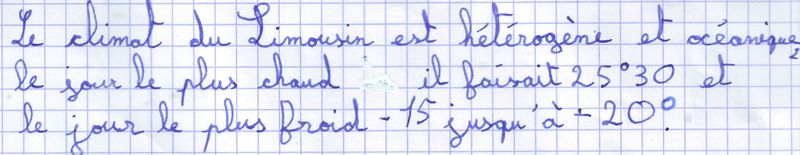 Le climat du Limousin est hétérogène et océanique,
le jour le plus chaud il faisait 25°30 et
le jour le plus froid - 15 jusqu'à - 20°.